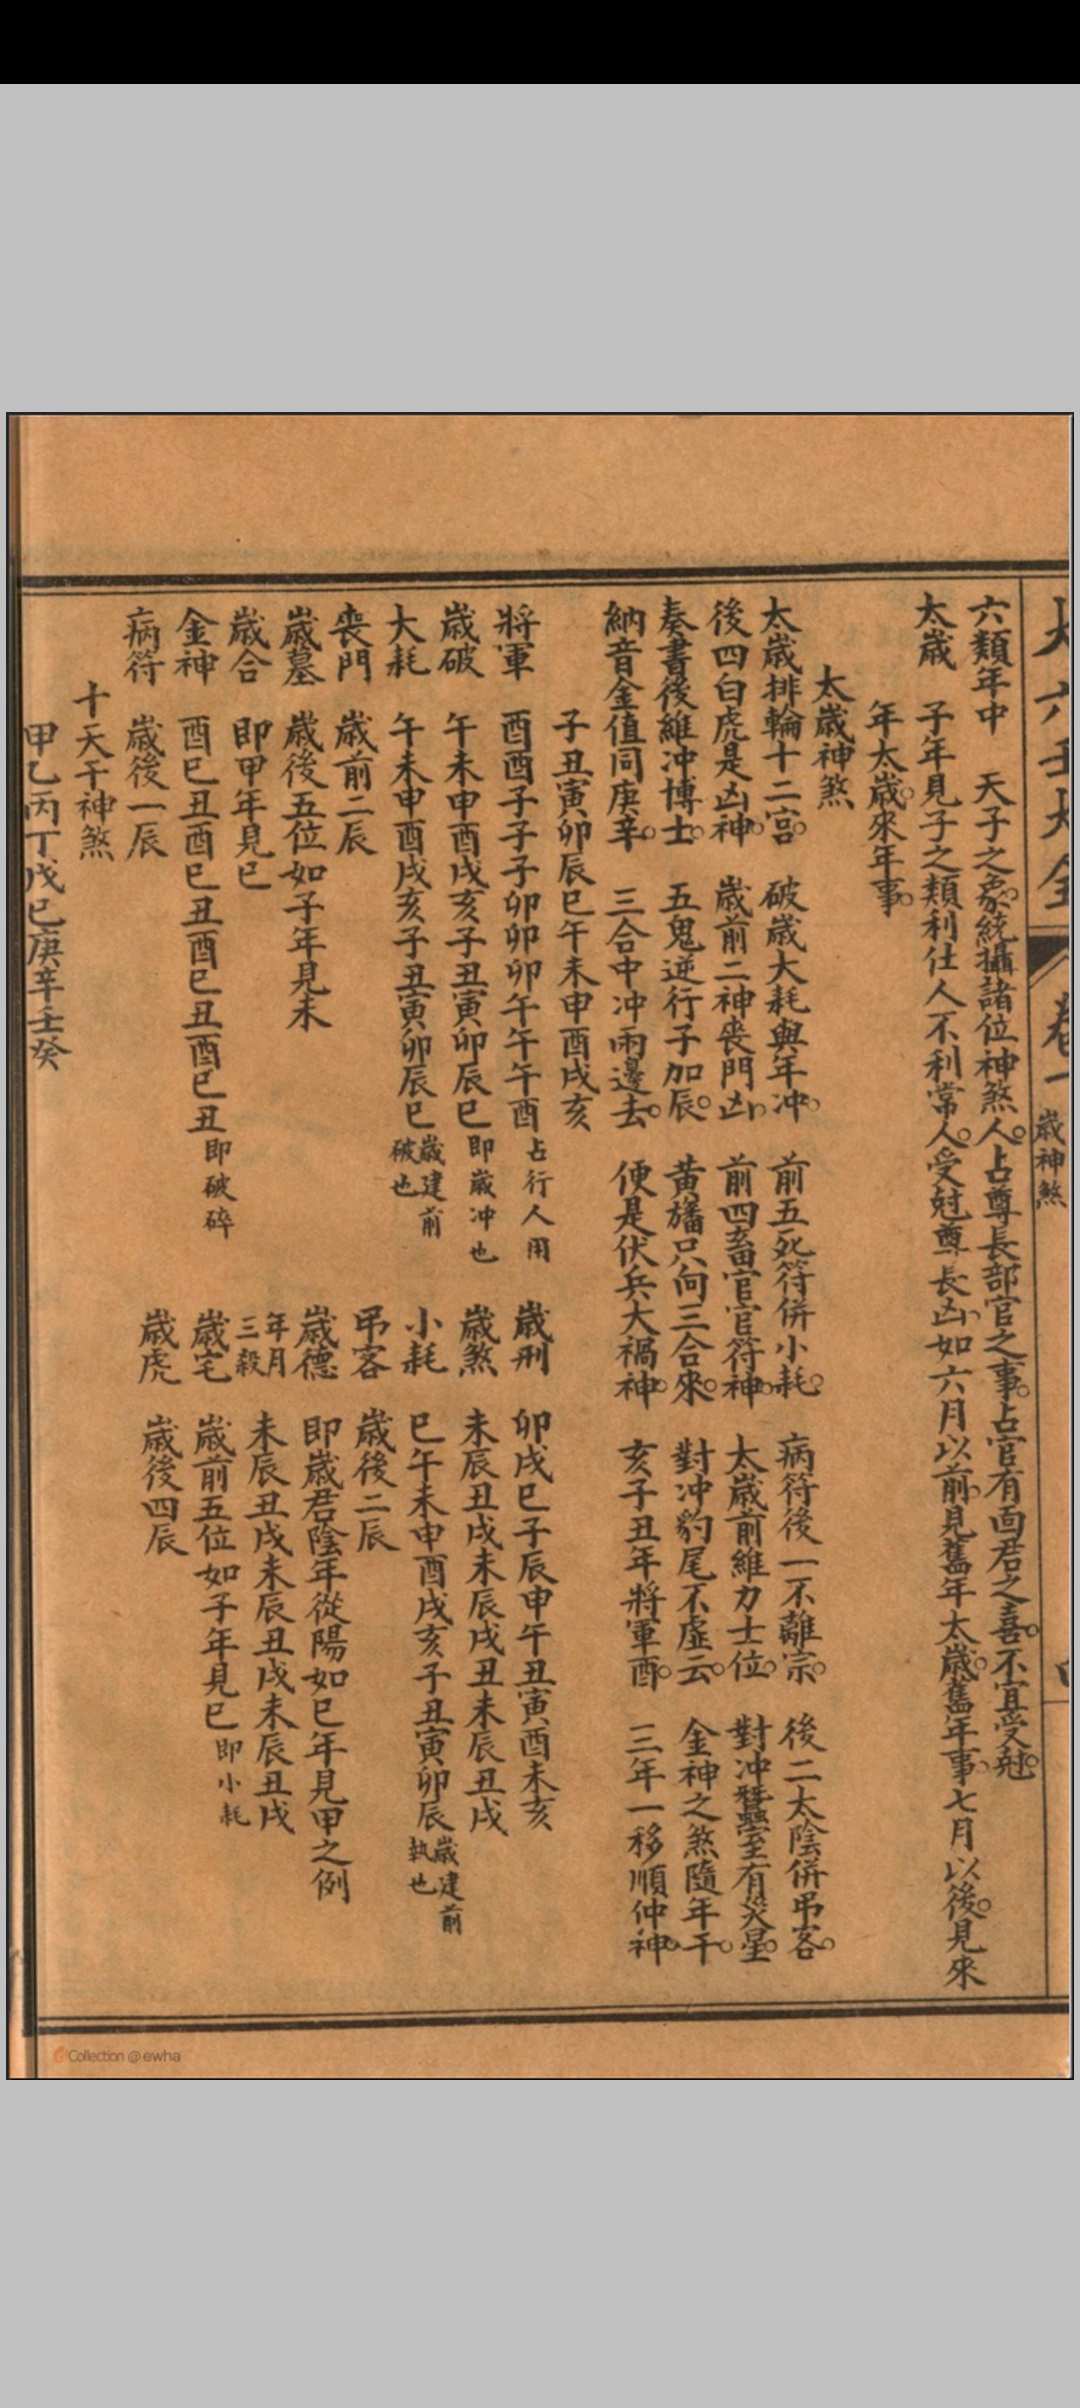 大六壬大全 卷一 歲神煞
六類年中 天子之象統攝諸位神煞人占尊長部官之事占官有面君之喜不宜受尅
太歲 子年見子之類利仕人不利常人受尅尊長凶如六月以前見舊年太歲舊年事七月以後見來
年太歲來年事
太歲神煞
太歲排輪十二宮 破歲大耗與年冲 前五死符併小耗 病符後一不離宗 後二太陰併弔客
後四白虎是凶神 歲前二神喪門凶 前四畜官官符神 太歲前維力士位 對冲蠶室有災星
奏書後維冲博士 五鬼逆行子加辰 黃旛只向三合來 對冲豹尾不虛云 金神之煞隨年干
納音金值同庚辛 三合中冲兩邊去 便是伏兵大禍神 亥子丑年將軍酉 三年一移順仲神
子丑寅卯辰巳午未申酉戌亥
將軍 酉酉子子子卯卯卯午午午酉 占行人用 歲刑 卯戌巳子辰申午丑寅酉未亥
歲破 午未申酉戌亥子丑寅卯辰巳 即歲冲也 歲煞 未辰丑戌未辰戌丑未辰丑戌
大耗 午未申酉戌亥子丑寅卯辰巳 歲建前破也 小耗 巳午未申酉戌亥子丑寅卯辰 歲建前執也
喪門 歲前二辰 弔客 歲後二辰
歲墓 歲後五位如子年見未 歲德 即歲君陰年從陽如巳年見甲之例
歲合 即甲年見巳 年月三殺 未辰丑戌未辰丑戌未辰丑戌
金神 酉巳丑酉巳丑酉巳丑酉巳丑 即破碎 歲宅 歲前五位如子年見巳 即小耗
病符 歲後一辰 歲虎 歲後四辰
十天干神煞
甲乙丙丁戊巳庚辛壬癸
Collection @ ewha